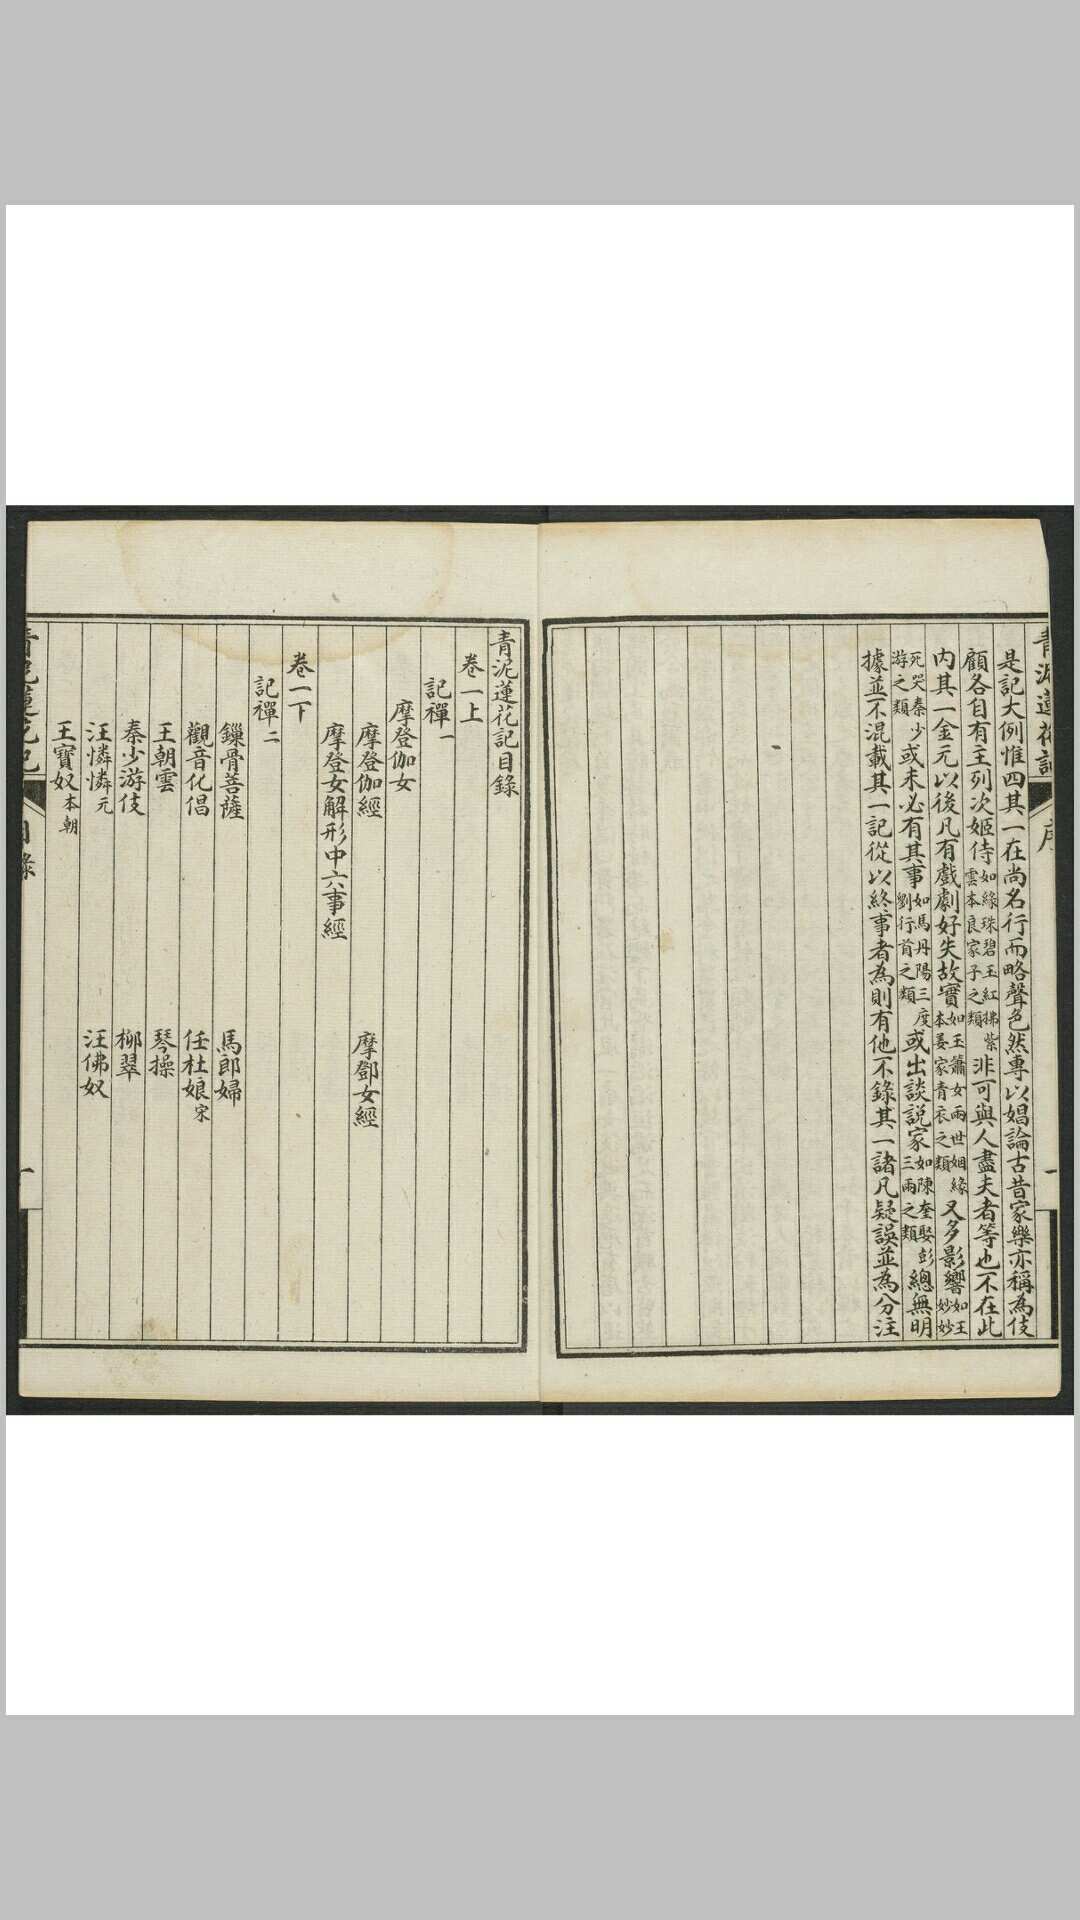 青泥蓮花記
序
一
是記大例惟四其一在尚名行而略聲色然專以娼論古昔家樂亦稱為伎
顧各自有主列次姬侍如綠珠碧玉紅拂紫雲本良家子之類非可與人盡夫者等也不在此
內其一金元以後凡有戲劇好失故實如玉簫女兩世姻緣本姜家青衣之類又多影響如王妙妙
死哭秦少游之類或未必有其事如馬丹陽三度劉行首之類或出談說家如陳奎娶彭三兩之類總無明
據並不混載其一記從以終事者為則有他不錄其一諸凡疑誤並為分注
青泥蓮花記目錄
卷一上
記禪一
摩登伽女
摩登伽經 摩鄧女經
摩登女解形中六事經
卷一下
記禪二
鏁骨菩薩 馬郎婦
觀音化倡 任杜娘宋
王朝雲 琴操
秦少游伎 柳翠
汪憐憐元 汪佛奴
王寶奴本朝
青泥蓮花記
目錄
一